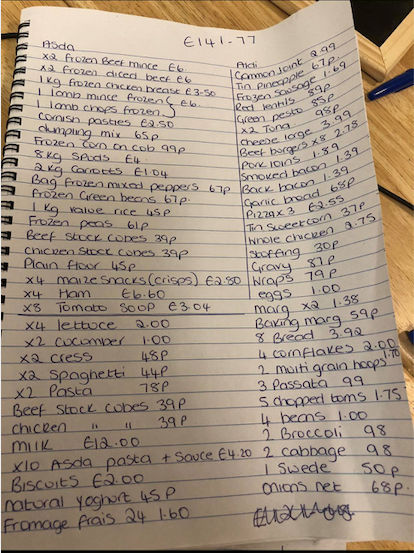 £141-77
Asda
x2 Frozen Beef mince £6
x2 frozen diced beef £6
1kg frozen chicken breast £3-50
1 lamb mince frozen } £6.
1 lamb chops frozen.
Cornish pasties £2.50
dumpling mix 65p
Frozen corn on cob 99p
8kg spuds £4
2kg carrots £1.04
Bag frozen mixed peppers 67p
Frozen Green beans 67p.
1kg value rice 45p
Frozen peas 61p
Beef Stock cubes 39p
Chicken Stock cubes 39p
Plain flour 45p
x4 maize snacks (crisps) £2.50
x4 Ham £6.60
x8 Tomato soup £3.04
x4 lettuce 2.00
x2 cucumber 1.00
x2 cress 48p
x2 Spaghetti 44p
x2 Pasta 78p
Beef Stock cubes 39p
chicken " " 39p
milk £12.00
x10 Asda pasta + sauce £4.20
Biscuits £2.00
natural yoghurt 45p
Fromage frais 24 1.60
Aldi
Gammon Joint 2.99
Tin Pineapple 67p.
Frozen Sausage 1.69
Red lentils 89p
Green pesto 85p
x2 Tuna 98p
cheese large 3.99
Beef burgers x8 2.78
Pork loins 1.89
Smoked bacon 1.39
Back bacon 1.39
Garlic bread 68p
Pizza x3 £2.55
Tin Sweetcorn 37p
Whole chicken 2.75
Stuffing 30p
Gravy 87p
Wraps 79p
eggs 1.00
marg x2 1.38
Baking marg 59p
8 Bread 3.92
4 cornflakes 2.00
2 multi grain hoops 1.70
3 Passata 99
5 chopped toms 1.75
4 beans 1.00
2 Broccoli 98
2 cabbage 98
1 Swede 50p
Onions net 68p.